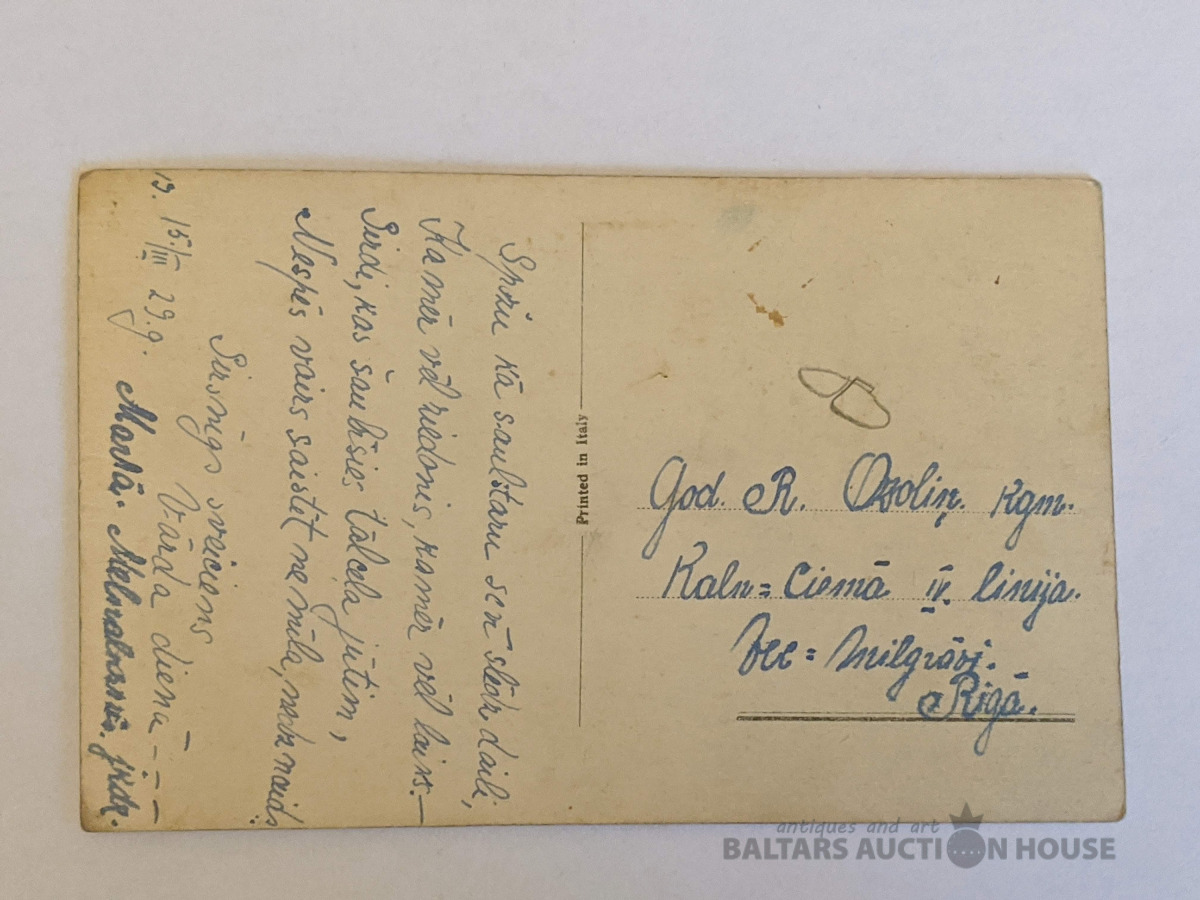 Spožu kā saulstaru sen slēdz daili,
Kamēr vēl ziedonis, kamēr vēl laiks.—
Sirdi, kas šauksies tālceļa jūtīm,
Nespēs vairs saistet ne mīla, nedz naids.
Sirsnīgs sveiciens
Vārda dienā
15./III 29.g. Martā.
Printed in Italy
God. R. Ozoliņ. kgm.
Kaln=Ciemā IV. linija.
Vec=Milgrāvī.
Rīgā.
antiques and art
BALTARS AUCTION HOUSE